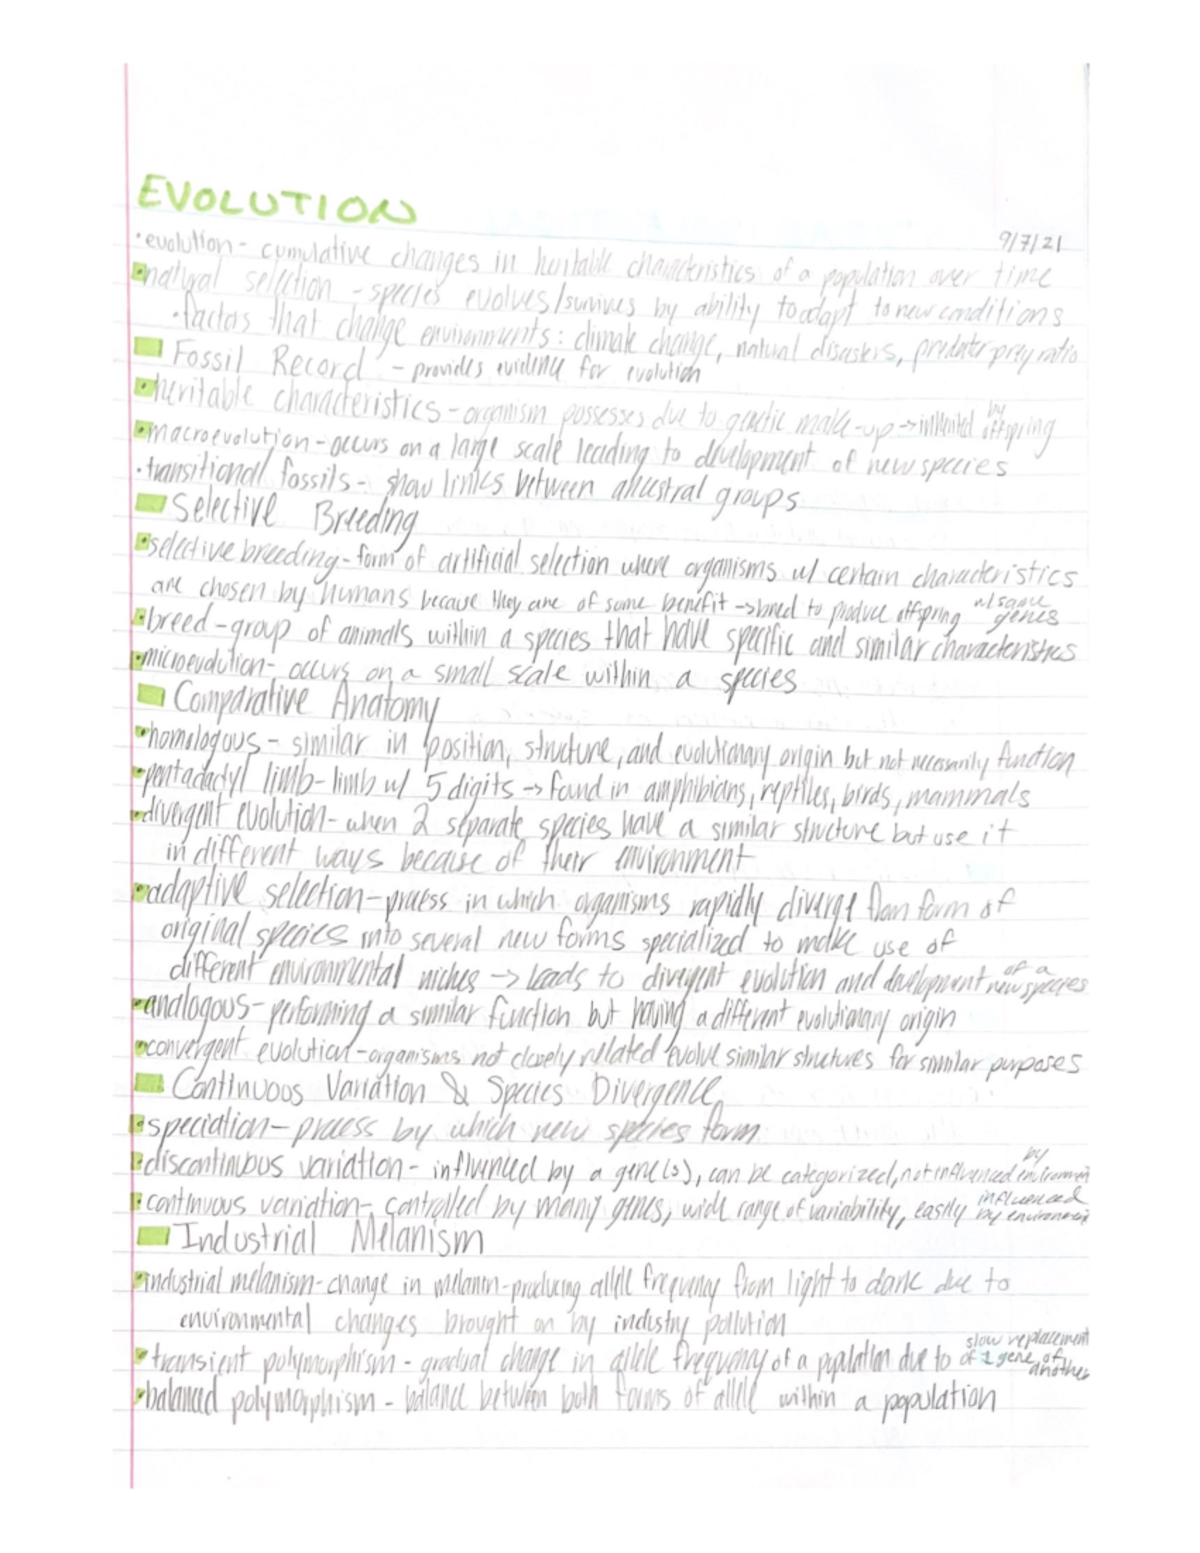 EVOLUTION
9/7/21
• evolution - cumulative changes in heritable characteristics of a population over time
• natural selection - species evolves/survives by ability to adapt to new conditions
• factors that change environments: climate change, natural disasters, predator prey ratio
Fossil Record - provides evidence for evolution
• heritable characteristics - organism possesses due to genetic make-up → inherited by offspring
• macroevolution - occurs on a large scale leading to development of new species
• transitional fossils - show links between ancestral groups
Selective Breeding
• selective breeding - form of artificial selection where organisms w/ certain characteristics
are chosen by humans because they are of some benefit → bred to produce offspring w/ same genes
• breed - group of animals within a species that have specific and similar characteristics
• microevolution - occurs on a small scale within a species
Comparative Anatomy
• homologous - similar in position, structure, and evolutionary origin but not necessarily function
• pentadactyl limb - limb w/ 5 digits → found in amphibians, reptiles, birds, mammals
• divergent evolution - when 2 separate species have a similar structure but use it
in different ways because of their environment
• adaptive selection - process in which organisms rapidly diverge from form of
original species into several new forms specialized to make use of
different environmental niches → leads to divergent evolution and development of a new species
• analogous - performing a similar function but having a different evolutionary origin
• convergent evolution - organisms not closely related evolve similar structures for similar purposes
Continuous Variation & Species Divergence
• speciation - process by which new species form
• discontinuous variation - influenced by a gene(s), can be categorized, not influenced by environmen
• continuous variation - controlled by many genes, wide range of variability, easily influenced by environmen
Industrial Melanism
• industrial melanism - change in melanin-producing allele frequency from light to dark due to
environmental changes brought on by industry pollution
• transient polymorphism - gradual change in allele frequency of a population due to slow replacement of 1 gene of another
• balanced polymorphism - balance between both forms of allele within a population